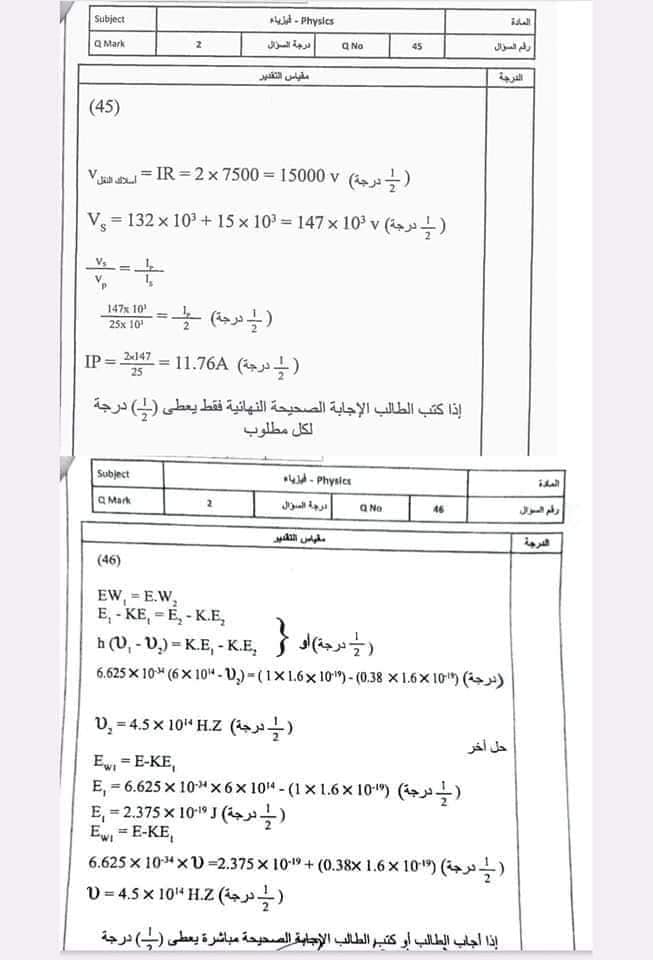 Subject فيزياء - Physics المادة
Q Mark 2 درجة السؤال Q No 45 رقم السؤال
مقياس التقدير الدرجة
(45)
V أسلاك النقل = IR = 2 x 7500 = 15000 v (1/2 درجة)
Vs = 132 x 10³ + 15 x 10³ = 147 x 10³ v (1/2 درجة)
Vs/Vp = Ip/Is
147x 10³/25x 10³ = Ip/2 (1/2 درجة)
IP = 2x147/25 = 11.76A (1/2 درجة)
إذا كتب الطالب الإجابة الصحيحة النهائية فقط يعطى (1/2) درجة
لكل مطلوب
Subject فيزياء - Physics المادة
Q Mark 2 درجة السؤال Q No 46 رقم السؤال
مقياس التقدير الدرجة
(46)
EW₁ = E.W₂
E₁ - KE₁ = E₂ - K.E₂
h (υ₁ - υ₂) = K.E₁ - K.E₂ } أو (1/2 درجة)
6.625 X 10⁻³⁴ (6 X 10¹⁴ - υ₂) = ( 1 X 1.6 X 10⁻¹⁹) - (0.38 X 1.6 X 10⁻¹⁹) (درجة)
υ₂ = 4.5 X 10¹⁴ H.Z (1/2 درجة)
حل أخر
EW₁ = E-KE₁
E₁ = 6.625 X 10⁻³⁴ X 6 X 10¹⁴ - (1 X 1.6 X 10⁻¹⁹) (1/2 درجة)
E₁ = 2.375 X 10⁻¹⁹ J (1/2 درجة)
EW₁ = E-KE₁
6.625 X 10⁻³⁴ X υ =2.375 X 10⁻¹⁹ + (0.38X 1.6 X 10⁻¹⁹) (1/2 درجة)
υ = 4.5 X 10¹⁴ H.Z (1/2 درجة)
إذا أجاب الطالب أو كتب الطالب الإجابة الصحيحة مباشرة يعطى (1/2) درجة